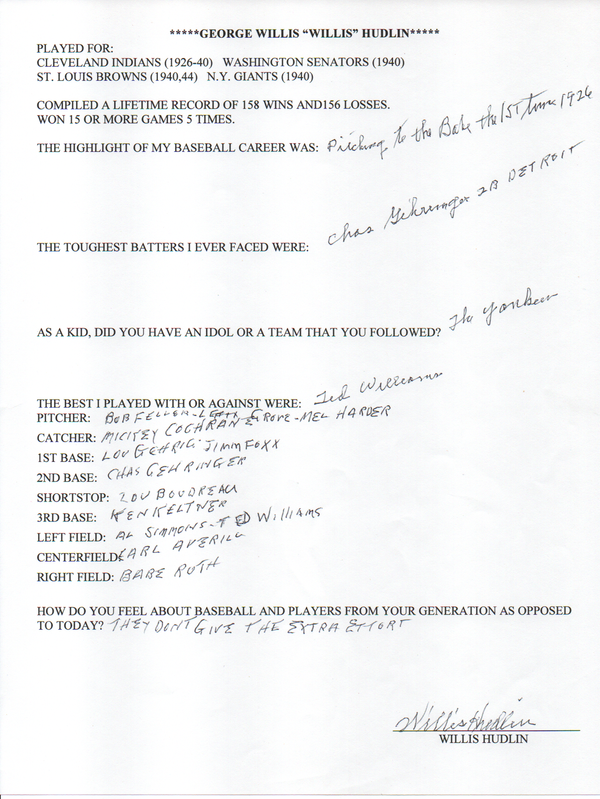 *****GEORGE WILLIS “WILLIS” HUDLIN*****
PLAYED FOR:
CLEVELAND INDIANS (1926-40) WASHINGTON SENATORS (1940)
ST. LOUIS BROWNS (1940,44) N.Y. GIANTS (1940)
COMPILED A LIFETIME RECORD OF 158 WINS AND156 LOSSES.
WON 15 OR MORE GAMES 5 TIMES.
THE HIGHLIGHT OF MY BASEBALL CAREER WAS: Pitching to the Babe the 1ST time 1926
THE TOUGHEST BATTERS I EVER FACED WERE: Chas Gehringer 2B DETROIT
AS A KID, DID YOU HAVE AN IDOL OR A TEAM THAT YOU FOLLOWED? The Yankees
THE BEST I PLAYED WITH OR AGAINST WERE: Ted Williams
PITCHER: BOB FELLER-LEFTY GROVE-MEL HARDER
CATCHER: MICKEY COCHRANE
1ST BASE: LOU GEHRIG-JIMM FOXX
2ND BASE: CHAS GEHRINGER
SHORTSTOP: LOU BOUDREAU
3RD BASE: KEN KELTNER
LEFT FIELD: AL SIMMONS-TED WILLIAMS
CENTERFIELD: EARL AVERILL
RIGHT FIELD: BABE RUTH
HOW DO YOU FEEL ABOUT BASEBALL AND PLAYERS FROM YOUR GENERATION AS OPPOSED
TO TODAY? THEY DONT GIVE THE EXTRA EFFORT
Willis Hudlin
WILLIS HUDLIN